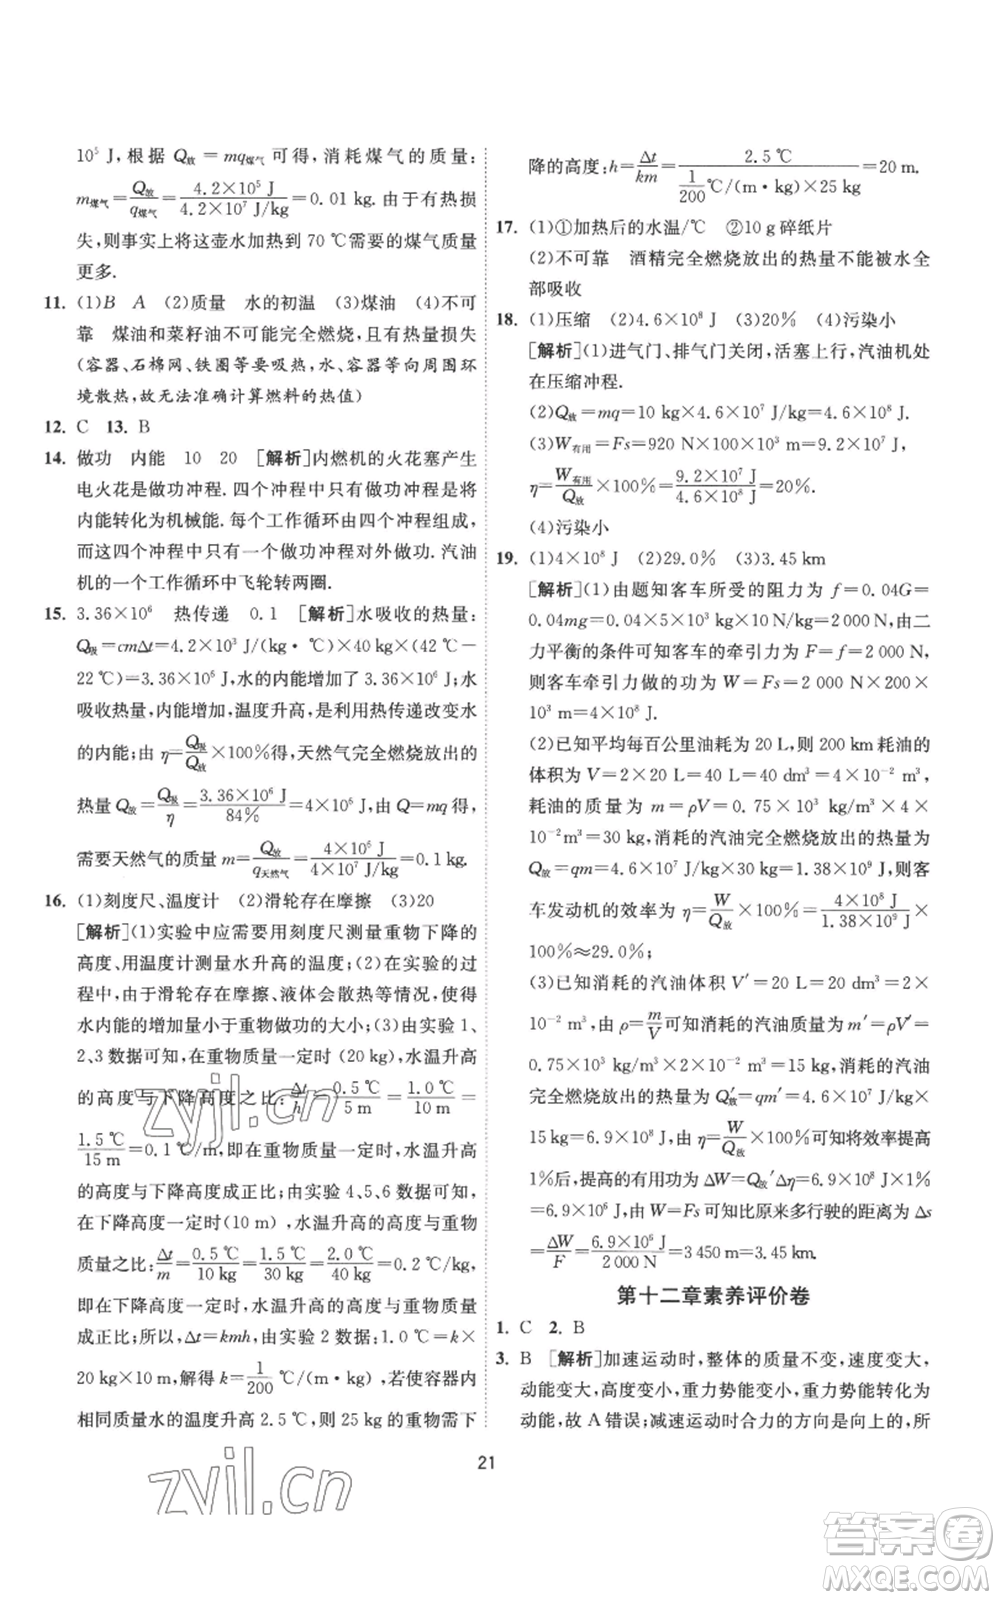 10⁵ J,根据 Q放 = mq煤气 可得,消耗煤气的质量:
m煤气=Q放/q煤气=4.2×10⁵ J/4.2×10⁷ J/kg=0.01 kg. 由于有热损
失,则事实上将这壶水加热到 70 ℃需要的煤气质量
更多.
11. (1)B A (2)质量 水的初温 (3)煤油 (4)不可
靠 煤油和菜籽油不可能完全燃烧,且有热量损失
(容器、石棉网、铁圈等要吸热,水、容器等向周围环
境散热,故无法准确计算燃料的热值)
12. C 13. B
14. 做功 内能 10 20 [解析]内燃机的火花塞产生
电火花是做功冲程. 四个冲程中只有做功冲程是将
内能转化为机械能. 每个工作循环由四个冲程组成,
而这四个冲程中只有一个做功冲程对外做功. 汽油
机的一个工作循环中飞轮转两圈.
15. 3.36×10⁶ 热传递 0.1 [解析]水吸收的热量:
Q吸=cmΔt=4.2×10³ J/(kg·℃)×40 kg×(42 ℃-
22 ℃)=3.36×10⁶ J;水的内能增加的过程中,水
吸收热量,内能增加,温度升高,是利用热传递改变水
的内能;由 η=Q吸/Q放×100%得,天然气完全燃烧放出的
热量 Q放=Q吸/η=3.36×10⁶ J/84%=4×10⁶ J,由 Q=mq 得,
需要天然气的质量 m=Q放/q天然气=4×10⁶ J/4×10⁷ J/kg=0.1 kg.
16. (1)刻度尺、温度计 (2)滑轮存在摩擦 (3)20
[解析](1)实验中应需要用刻度尺测量重物下降的
高度、用温度计测量水升高的温度;(2)在实验的过
程中,由于滑轮存在摩擦、液体会散热等情况,使得
水内能的增加量小于重物做功的大小;(3)由实验 1、
2、3 数据可知,在重物质量一定时(20 kg),水温升高
的高度与下降高度之比:Δt/h=0.5 ℃/5 m=1.0 ℃/10 m=
1.5 ℃/15 m=0.1 ℃/m,故重物质量一定时,水温升高
的高度与下降高度成正比;由实验 4、5、6 数据可知,
在下降高度一定时(10 m),水温升高的高度与重物
质量之比:Δt/m=0.5 ℃/10 kg=1.5 ℃/30 kg=2.0 ℃/40 kg=0.05 ℃/kg,
即下降高度一定时,水温升高的高度与重物质量成正
比;所以,Δt=kmh,由实验 2 数据可知:1.0 ℃=k×
20 kg×10 m,解得 k=1/200 ℃/(m·kg),若使容器内
相同质量水的温度升高 2.5 ℃,则 25 kg 的重物需下
降的高度:h=Δt/km=2.5 ℃/(1/200 ℃/(m·kg)×25 kg)=20 m.
17. (1)①加热后的水温/℃ ②10 g 碎纸片
(2)不可靠 酒精完全燃烧放出的热量不能被水全
部吸收
18. (1)压缩 (2)4.6×10⁸ J (3)20% (4)污染小
[解析](1)进气门、排气门关闭,活塞上行,汽油机处
在压缩冲程.
(2)Q放=mq=10 kg×4.6×10⁷ J/kg=4.6×10⁸ J.
(3)W有用=Fs=920 N×100×10³ m=9.2×10⁷ J,
η=W有用/Q放×100%=9.2×10⁷ J/4.6×10⁸ J=20%.
(4)污染小
19. (1)4×10⁸ J (2)29.0% (3)3.45 km
[解析](1)由题知客车所受的阻力为 f=0.04G=
0.04mg=0.04×5×10³ kg×10 N/kg=2 000 N,由二
力平衡的条件可知客车的牵引力为 F=f=2 000 N,
则客车牵引力做的功为 W=Fs=2 000 N×200×
10³ m=4×10⁸ J.
(2)已知平均每百公里油耗为 20 L,则 200 km 耗油的
体积为 V=2×20 L=40 L=40 dm³=4×10⁻² m³,
耗油的质量为 m=ρV=0.75×10³ kg/m³×4×
10⁻²m³=30 kg,消耗的汽油完全燃烧放出的热量为
Q放=qm=4.6×10⁷ J/kg×30 kg=1.38×10⁹ J,则客
车发动机的效率为 η=W/Q放×100%=4×10⁸ J/1.38×10⁹ J×
100%≈29.0%;
(3)已知消耗的汽油体积 V′=20 L=20 dm³=2×
10⁻² m³,由 ρ=m/V可知消耗的汽油质量为 m′=ρV′=
0.75×10³ kg/m³×2×10⁻² m³=15 kg,消耗的汽油
完全燃烧放出的热量为 Q′放=qm′=4.6×10⁷ J/kg×
15 kg=6.9×10⁸ J,由 η=W/Q放×100%可知将效率提高
1%后,提高的有用功为 ΔW=Q放′Δη=6.9×10⁸ J×1%
=6.9×10⁶ J,由 W=Fs 可知比原来多行驶的距离为 Δs
=ΔW/F=6.9×10⁶ J/2 000 N=3 450 m=3.45 km.
第十二章素养评价卷
1. C 2. B
3. B [解析]加速运动时,整体的质量不变,速度变大,
动能变大,高度变小,重力势能变小,重力势能转化为
动能,故 A 错误;减速运动时合力的方向是向上的,所
21
zyjl.cn
zyjl.cn
答案圈
MXQE.COM